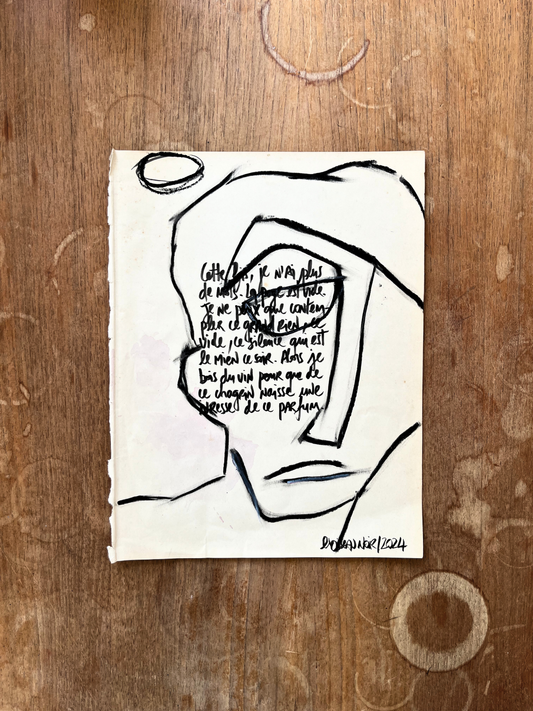 Cette fois, je n'ai plus
de mots. La page est vide.
Je ne peux que contem-
pler ce grand rien, ce
vide, ce silence qui est
le mien ce soir. Alors je
bois du vin pour que de
ce chagrin naisse une
ivresse de ce parfum.
NOIR/2024